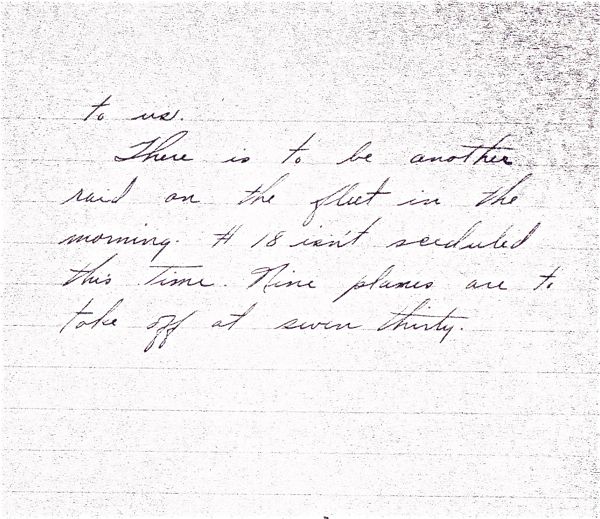 to us.
There is to be another
raid on the fleet in the
morning. # 18 isn't sceduled
this time. Nine planes are to
take off at seven thirty.